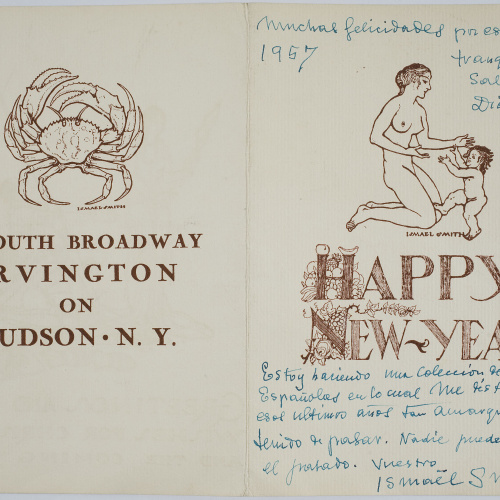 ISMAEL SMITH
OUTH BROADWAY
RVINGTON
ON
UDSON · N. Y.
Muchas felicidades por es
1957
tranq
Sal
Di
ISMAEL SMITH
HAPPY
NEW-YEA
Estoy haciendo una colección de
Españolas en lo cual me dist
esos ultimos años tan amarg
tenido de pasar. Nadie puede
el pasado. Vuestro
Ismaël S